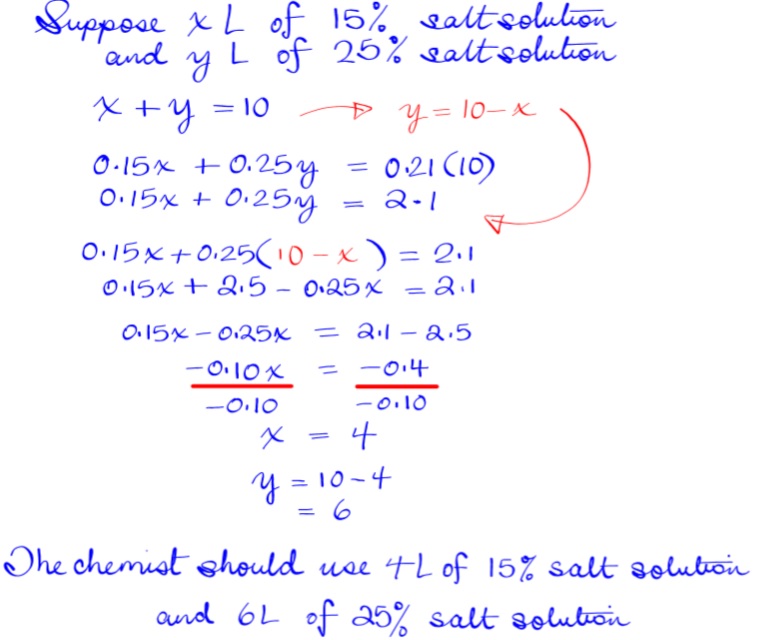 Suppose x L of 15% salt solution
and y L of 25% salt solution
x + y = 10 → y = 10 - x
0.15x + 0.25y = 0.21(10)
0.15x + 0.25y = 2.1
0.15x + 0.25(10 - x) = 2.1
0.15x + 2.5 - 0.25x = 2.1
0.15x - 0.25x = 2.1 - 2.5
-0.10x = -0.4
-0.10 -0.10
x = 4
y = 10 - 4
= 6
The chemist should use 4L of 15% salt solution
and 6L of 25% salt solution